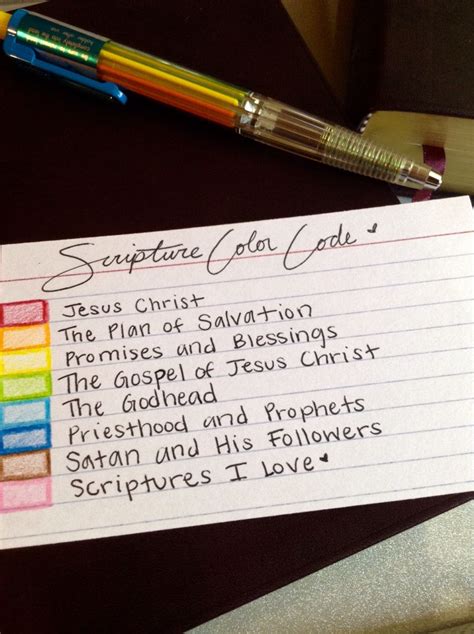 Scripture Color Code
Jesus Christ
The Plan of Salvation
Promises and Blessings
The Gospel of Jesus Christ
The Godhead
Priesthood and Prophets
Satan and His Followers
Scriptures I Love